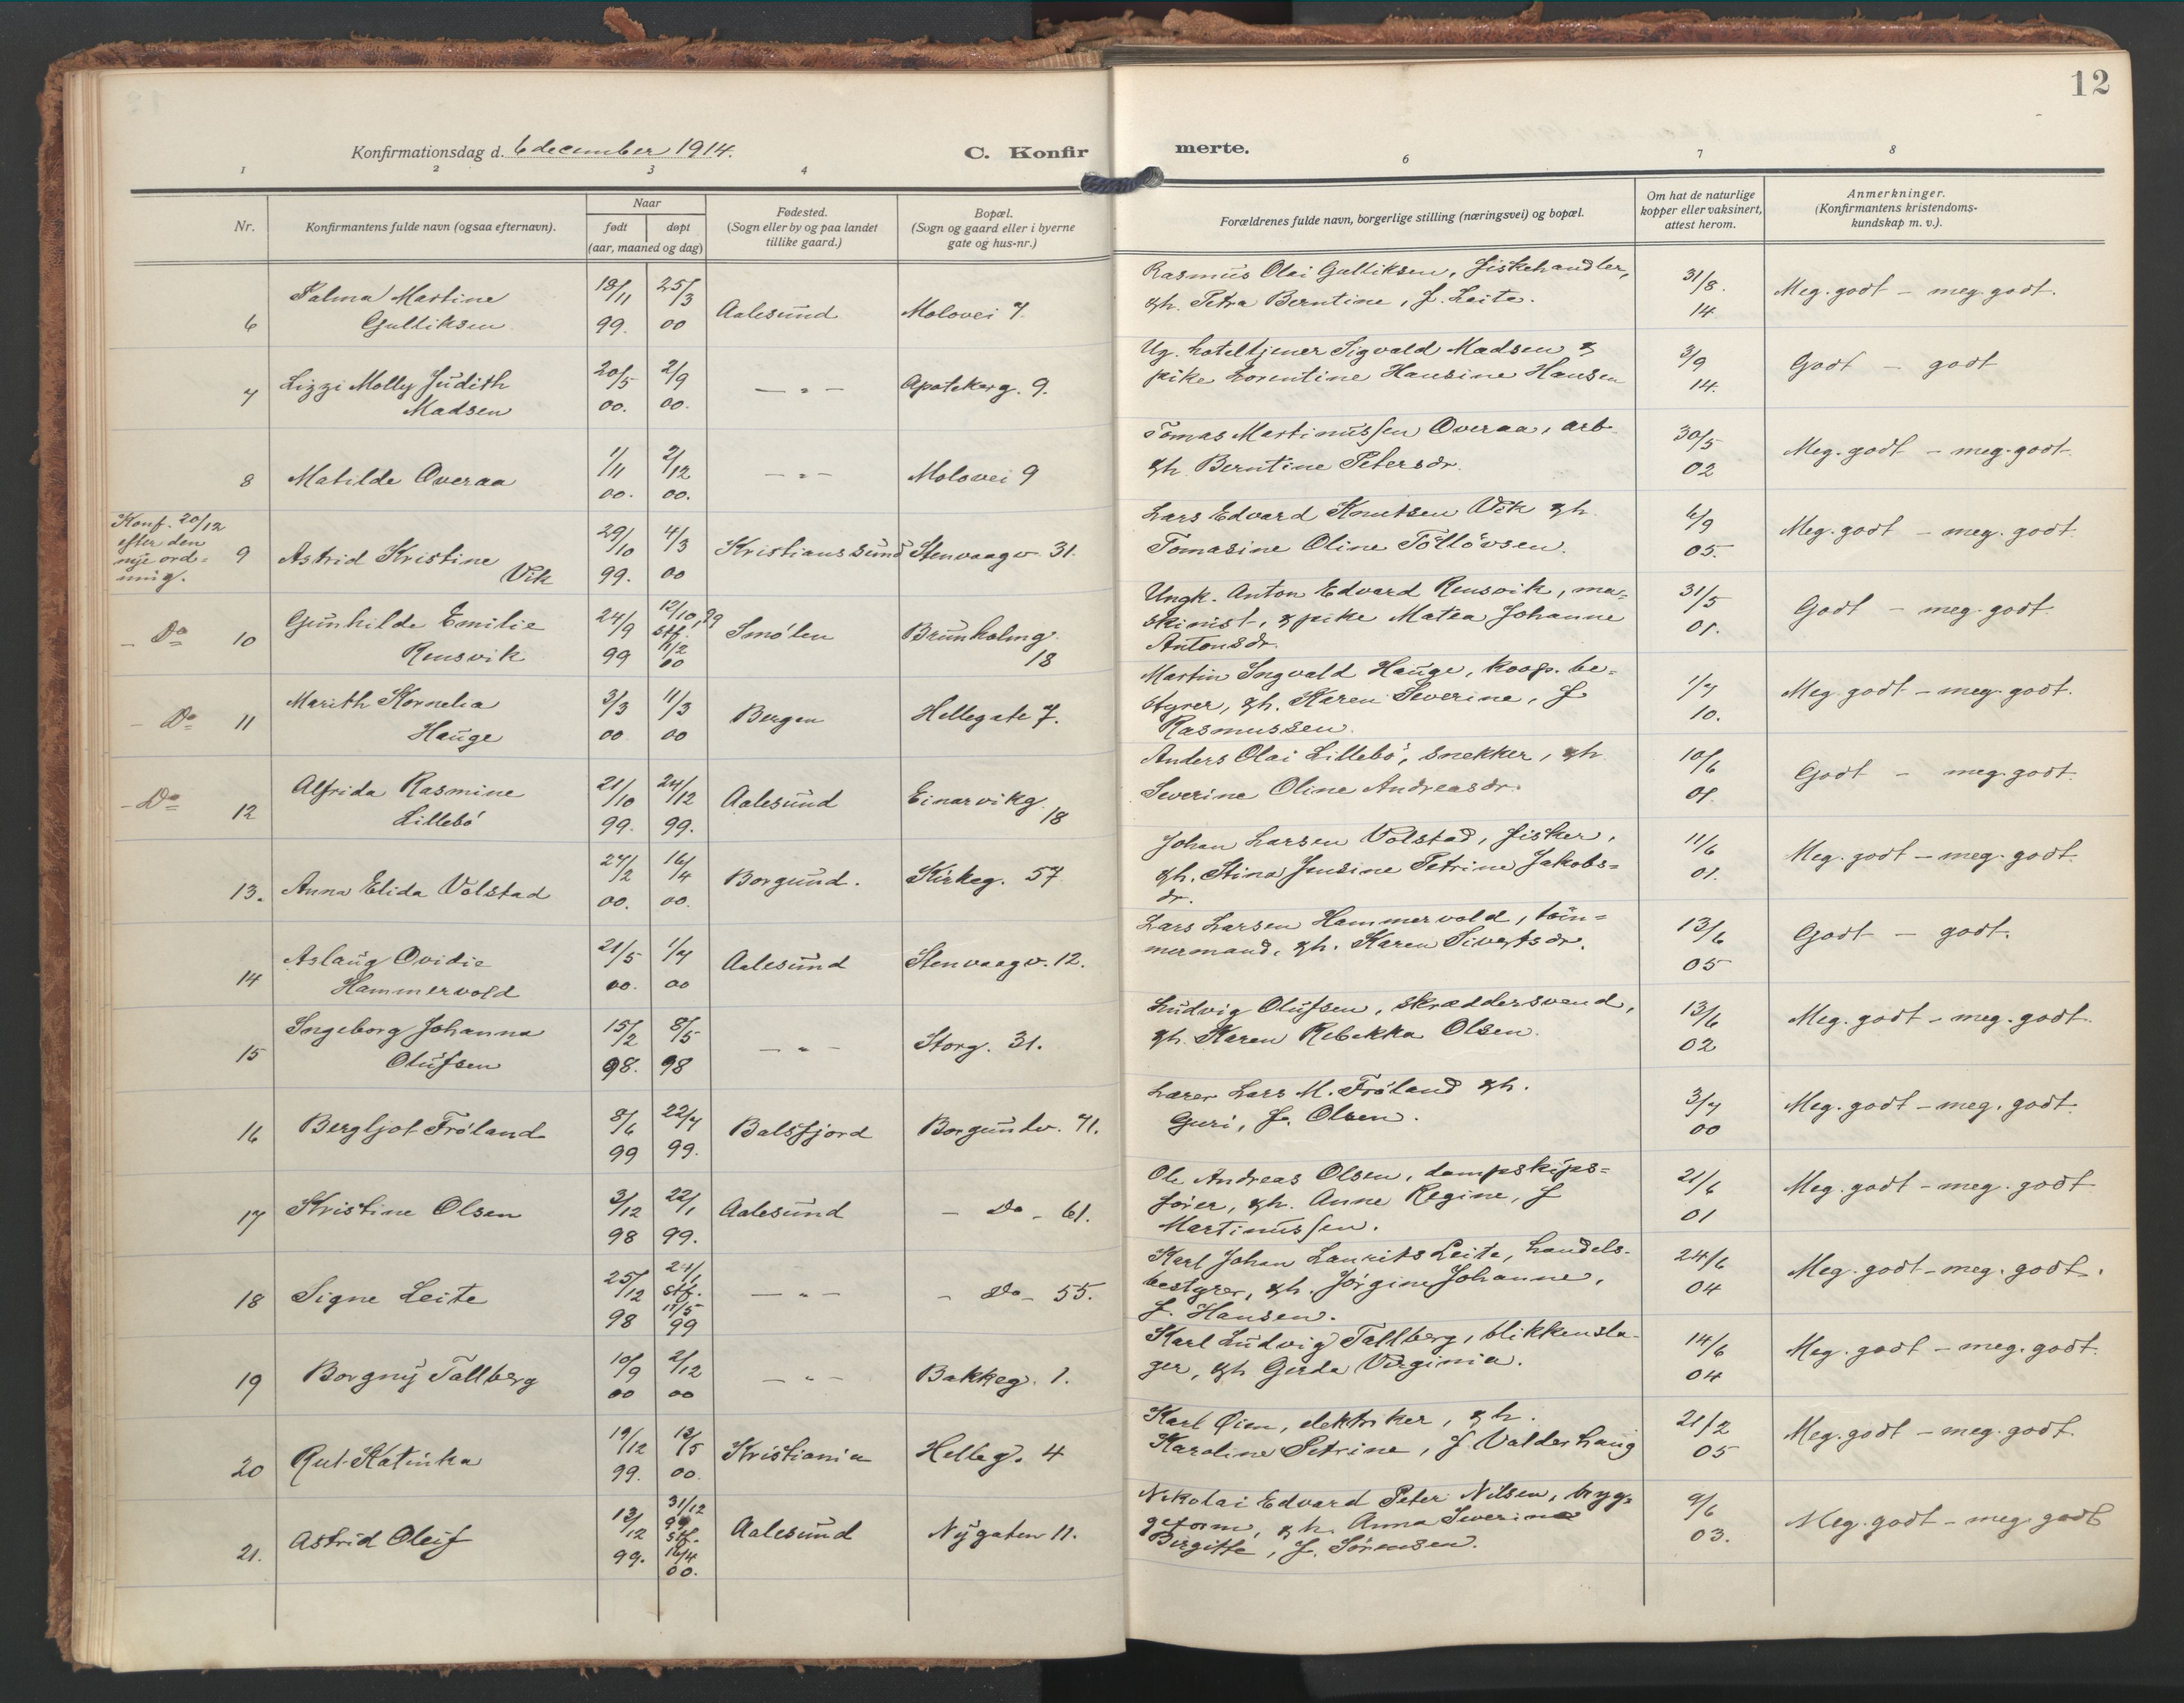 12
Konfirmationsdag d. 6 december 1914.
C. Konfir
merte.
1 2 3 4 6 7 8
Nr.
Konfirmantens fulde navn (ogsaa efternavn).
Naar
født døpt
(aar, maaned og dag)
Fødested.
(Sogn eller by og paa landet
tillike gaard.)
Bopæl.
(Sogn og gaard eller i byerne
gate og hus-nr.)
Forældrenes fulde navn, borgerlige stilling (næringsvei) og bopæl.
Om hat de naturlige
kopper eller vaksinert,
attest herom.
Anmerkninger.
(Konfirmantens kristendoms-
kundskap m. v.).
6 Palma Martine
Gulliksen
18/11 99. 25/3 00
Aalesund
Molovei 7.
Rasmus Olai Gulliksen, fiskehandler,
gh. Petra Berntine, f. Leite.
31/8. 14
Meg. godt – meg. godt.
7 Lizzi Molly Judith
Madsen
20/5 00. 2/9 00.
— " —
Apotekerg. 9.
Ug. hoteltjener Sigvald Madsen &
pike Lorentine Hansine Hansen
3/9 14.
Godt – godt
8 Matilde Overaa
1/11 00. 2/12 00.
— " —
Molovei 9
Tomas Martinussen Overaa, arb.
gh. Berntine Petersdr.
30/5 02
Meg. godt – meg. godt.
Konf. 20/12
efter den
nye ord-
ning.
9 Astrid Kristine
Vik
29/10 99. 4/3 00
Kristianssund
Stenvaagv. 31.
Lars Edvard Knutsen Vik gh.
Tomasine Oline Töllövsen.
6/9 05.
Meg. godt – meg. godt.
– Do 10 Gunhilde Emilie
Rensvik
24/9 99 12/10, 99 stf. 11/2 00
Smölen
Brunholmg.
18
Ungk. Anton Edvard Rensvik, ma-
skinist, & pike Matea Johanne
Antonsdr.
31/5 01.
Godt – meg. godt
– Do 11 Marith Kornelia
Hauge
3/3 00 11/3 00
Bergen
Hellegate 7.
Martin Ingvald Hauge, koop. be-
styrer, gh. Karen Severine, f.
Rasmussen.
1/7 10.
Meg. godt – meg. godt.
– Do 12 Alfrida Rasmine
Lillebö
21/10 99. 24/12 99.
Aalesund
Einarvikg.
18
Anders Olai Lillebö, snekker, gh
Severine Oline Andreasdr.
10/6 01.
Godt – meg. godt.
13. Anna Elida Volstad
27/2 00. 16/4 00.
Borgund.
Kirkeg. 57
Johan Larsen Volstad, fisker,
gh. Stina Jensine Petrine Jakobs-
dr.
11/6 01.
Meg. godt – meg. godt.
14 Aslaug Ovidie
Hammervold
21/5 00. 1/7 00
Aalesund
Stenvaagv. 12.
Lars Larsen Hammervold, töm-
mermand, gh. Karen Sivertsdr.
13/6 05
Godt – godt.
15 Ingeborg Johanna
Olufsen
15/2 98. 8/5 98
— " —
Storg. 31.
Ludvig Olufsen, skræddersvend,
gh. Karen Rebekka Olsen.
13/6 02
Meg. godt – meg. godt.
16 Bergljot Fröland
8/6 99 22/7 99.
Balsfjord
Borgundv. 71.
Lærer Lars M. Fröland gh.
Guri, f. Olsen.
3/7 00
Meg. godt – meg. godt.
17 Kristine Olsen
3/12 98 22/1 99.
Aalesund
– Do – 61.
Ole Andreas Olsen, dampskips-
förer, gh. Anne Regine, f
Martinussen.
21/6 01
Meg. godt – meg. godt
18 Signe Leite
25/12 98 21/1 stf. 11/5 99
— " —
– Do – 55.
Karl Johan Laurits Leite, handels-
bestyrer, gh. Jörgine Johanne,
f. Hansen.
24/6 04
Meg. godt – meg. godt.
19 Borgny Tallberg
10/9 00 2/12 00
— " —
Bakkeg. 1.
Karl Ludvig Tallberg, blikkensla-
ger, gh Gerda Virginia.
14/6 04
Meg. godt – meg. godt.
20 Rut Katinka
19/12 99. 13/5 00.
Kristiania
Helleg. 4
Karl Øien, elektriker, gh.
Karoline Petrine, f. Valderhaug
21/2 05
Meg. godt – meg. godt.
21. Astrid Oleif
13/12 99. 31/12 99 stf. 16/4 00.
Aalesund
Nygaten 11.
Nikolai Edvard Peter Nilsen, bryg-
geform, gh. Anna Severine
Birgitte, f. Sörensen.
9/6 03.
Meg. godt – meg. godt